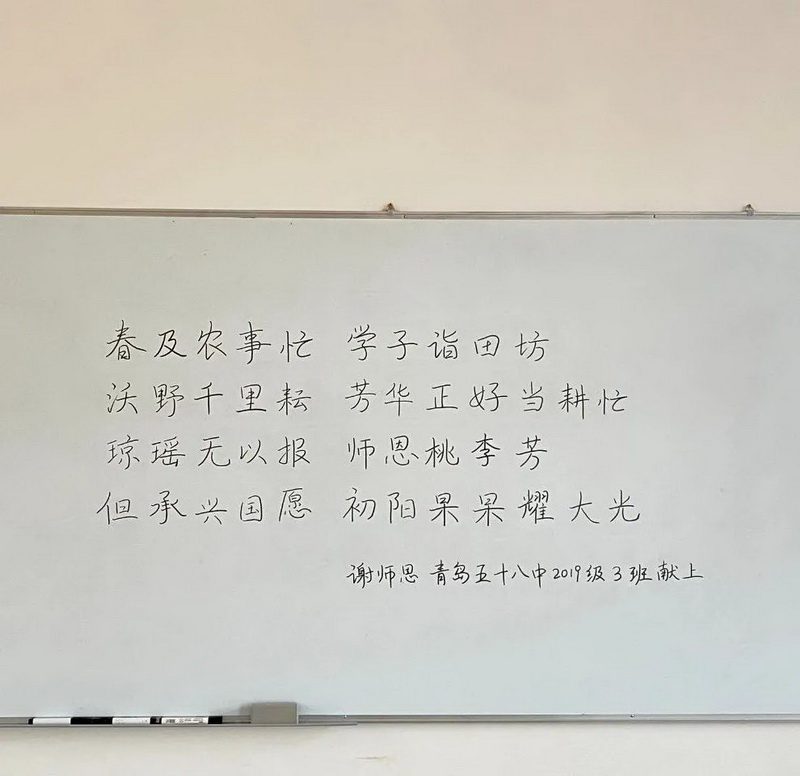 春及农事忙 学子诣田坊
沃野千里耘 芳华正好当耕忙
琼瑶无以报 师恩桃李芳
但承兴国愿 初阳果果耀大光
谢师恩 青岛五十八中2019级3班献上